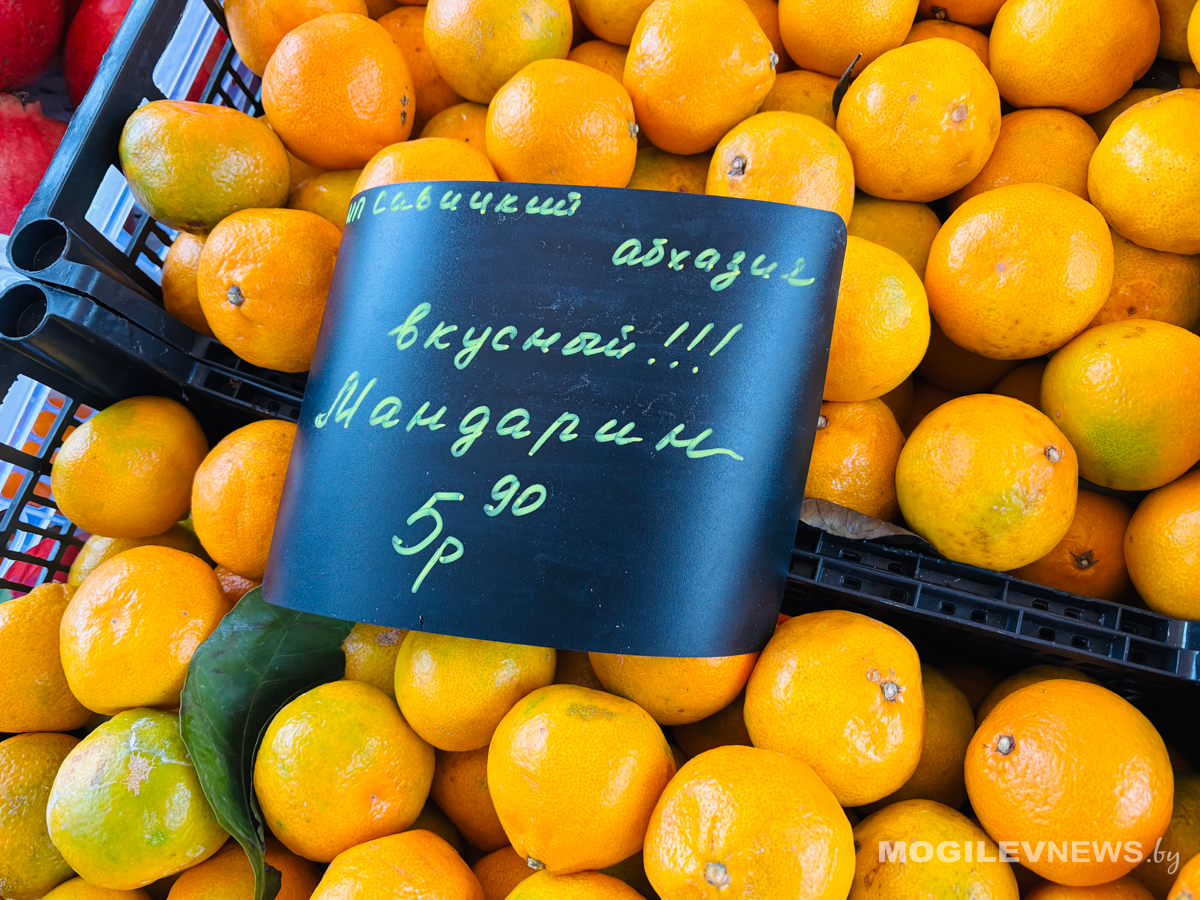 ип Сивицкий
абхазия
вкусный!!!
Мандарин
5р 90
MOGILEVNEWS.by